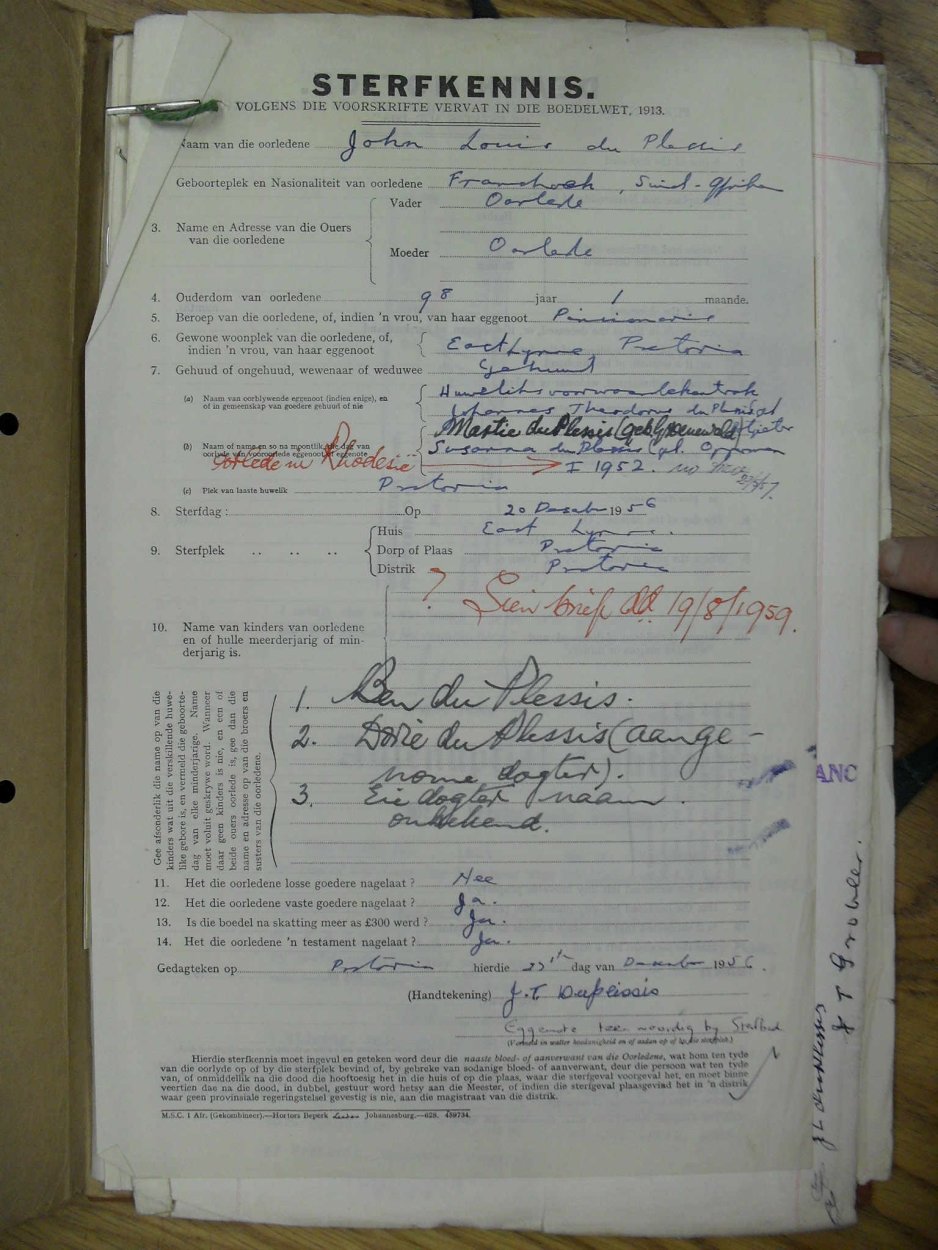 STERFKENNIS.
VOLGENS DIE VOORSKRIFTE VERVAT IN DIE BOEDELWET, 1913.
Naam van die oorledene John Louis du Plessis
Geboorteplek en Nasionaliteit van oorledene Franchoek, Suid-Afrikan
3. Name en Adresse van die Ouers van die oorledene
Vader Oorlede
Moeder Oorlede
4. Ouderdom van oorledene 98 jaar 1 maande.
5. Beroep van die oorledene, of, indien 'n vrou, van haar eggenoot
6. Gewone woonplek van die oorledene, of, indien 'n vrou, van haar eggenoot
East Lynne Pretoria
7. Gehuud of ongehuud, wewenaar of weduwee Gehuud
(a) Naam van oorblywende eggenoot (indien enige), en of in gemeenskap van goedere gehuud of nie
Huweliksvoorwaardekontrak
Johannes Theodorus du Plessis
(b) Naam of name en so na moontlik die dag van oorlede van vooroorlede eggenoot of eggenote
Martie du Plessis (geb. Groenewald)
Susanna du Plessis
oorlede in Rhodesië
± 1952.
(c) Plek van laaste huwelik Pretoria
8. Sterfdag : Op 20 Desember 1956
9. Sterfplek .. .. ..
Huis East Lynne.
Dorp of Plaas Pretoria
Distrik Pretoria
? Sien brief dd. 19/8/1959.
10. Name van kinders van oorledene en of hulle meerderjarig of minderjarig is.
Gee afsonderlik die name op van die
kinders wat uit die verskillende huwe-
like gebore is, en vermeld die geboorte-
dag van elke minderjarige. Name
moet voluit geskrywe word. Wanneer
daar geen kinders is nie, en een of
beide ouers oorlede is, gee dan die
name en adresse op van die broers en
susters van die oorledene.
1. Ben du Plessis.
2. Dorie du Plessis (aange-
nome dogter).
3. Eie dogter naam
onbekend.
11. Het die oorledene losse goedere nagelaat ? Nee
12. Het die oorledene vaste goedere nagelaat ? Ja.
13. Is die boedel na skatting meer as £300 werd ? Ja.
14. Het die oorledene 'n testament nagelaat ? Ja.
Gedagteken op Pretoria hierdie 27ste dag van Desember 1956.
(Handtekening) J.T Duplessis
Eggenote teenwoordig by Sterfbed
Hierdie sterfkennis moet ingevul en geteken word deur die naaste bloed- of aanverwant van die Oorledene, wat hom ten tyde
van die oorlyde op of by die sterfplek bevind of, by gebreke van sodanige bloed- of aanverwant, deur die persoon wat ten tyde
van, of onmiddellik na die dood die hooftoesig het in die huis of op die plaas, waar die sterfgeval voorgeval het, en moet binne
veertien dae na die dood, in dubbel, gestuur word hetsy aan die Meester, of indien die sterfgeval plaasgevind het in 'n distrik
waar geen provinsiale regeringstelsel gevestig is nie, aan die magistraat van die distrik.
M.S.C. 1 Afr. (Gekombineer).—Hortors Beperk Johannesburg.—628. 439734.
ANC